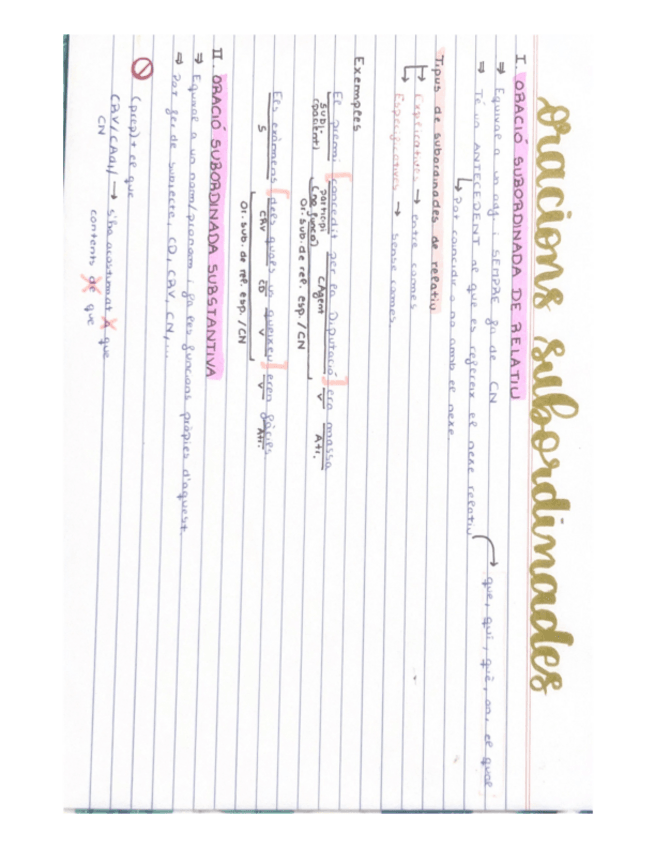 oracions subordinades
I. ORACIÓ SUBORDINADA DE RELATIU
⇒ Equival a un adj. i SEMPRE fa de CN
⇒ Té un ANTECEDENT al que es refereix el nexe relatiu → que, qui, què, on, el qual
↳ Pot coincidir o no amb el nexe.
Tipus de subordinades de relatiu
→ Explicatives → entre comes
→ Especificatives → sense comes.
Exemples
El premi [concedit per la Diputació] era massa
subj. (pacient) participi (no funció) CAgent V Atr.
Or. sub. de rel. esp. / CN
Els exàmens [dels quals us queixeu] eren fàcils.
S CRV CD V V Atr.
Or. sub. de rel. esp. / CN
II. ORACIÓ SUBORDINADA SUBSTANTIVA
⇒ Equival a un nom/pronom i fa les funcions pròpies d'aquest.
⇒ Pot fer de subjecte, CD, CRV, CN,...
(prep) + el que
CRV/CAdj/CN → s'ha acostumat A que
contents de que